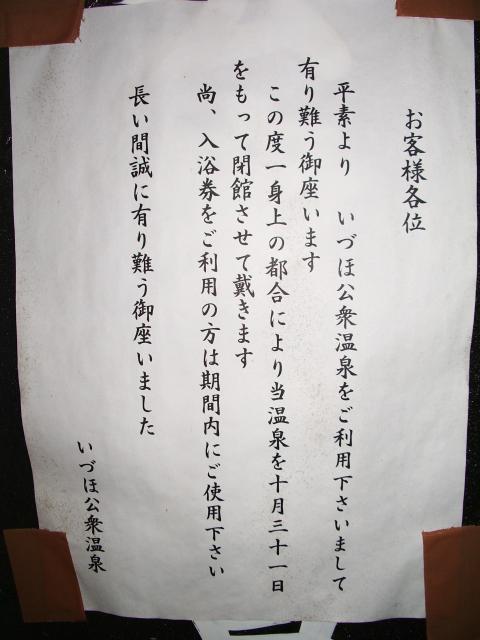 お客様各位
平素より　いづほ公衆温泉をご利用下さいまして
有り難う御座います
この度一身上の都合により当温泉を十月三十一日
をもって閉館させて戴きます
尚、入浴券をご利用の方は期間内にご使用下さい
長い間誠に有り難う御座いました
いづほ公衆温泉